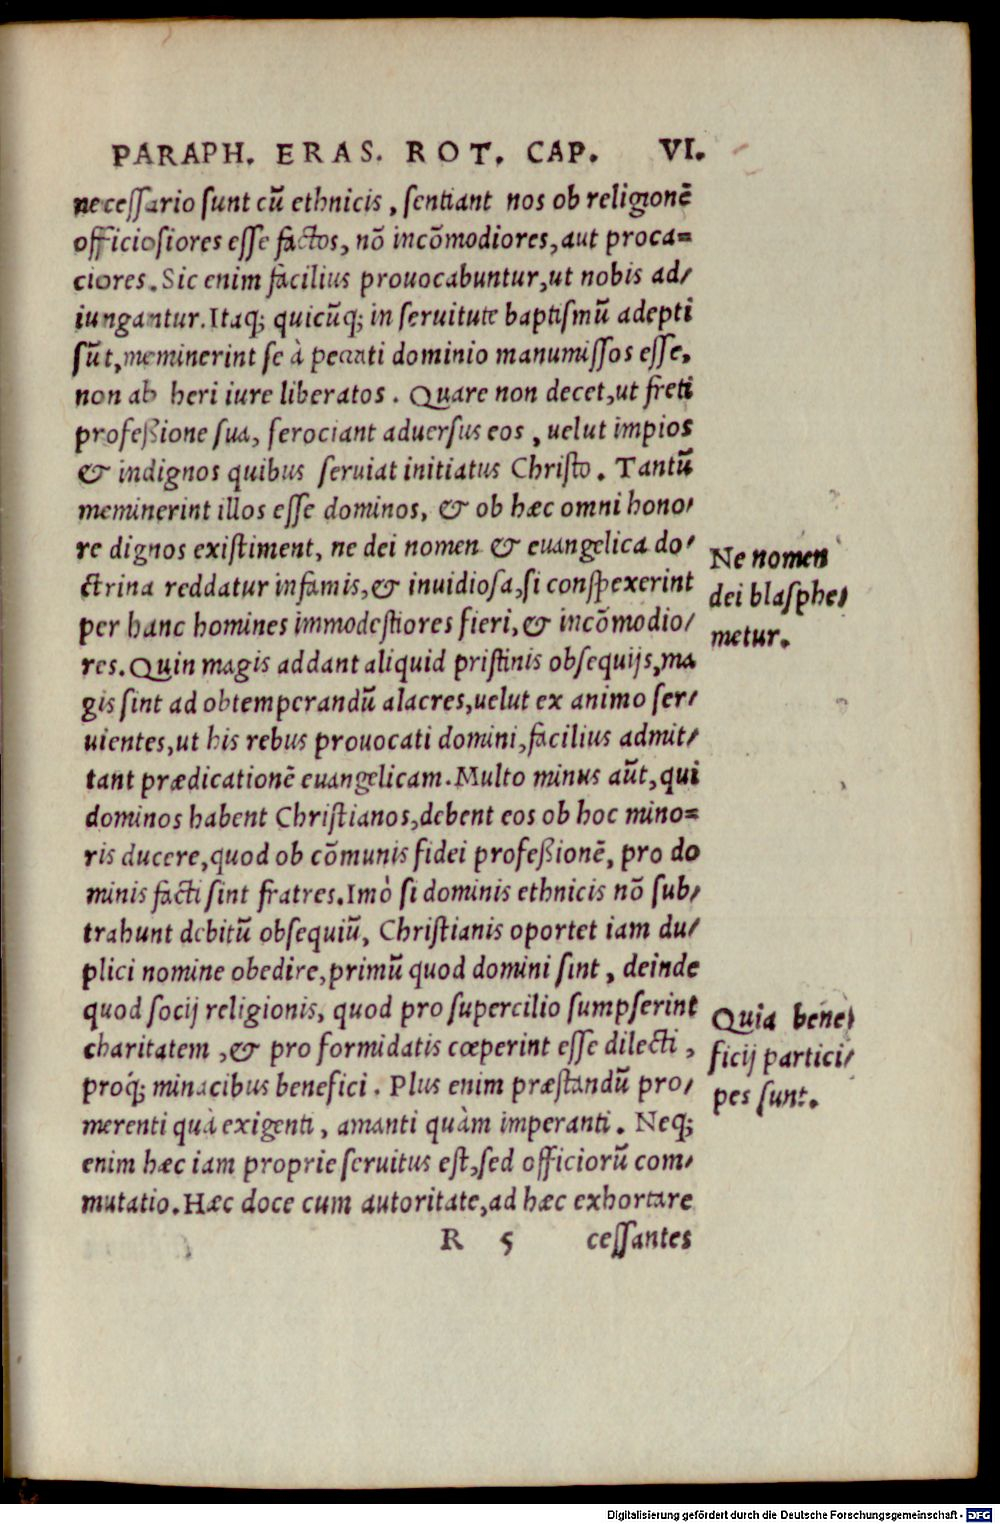 PARAPH. ERAS. ROT. CAP. VI.
necessario sunt cũ ethnicis, sentiant nos ob religionẽ
officiosiores esse factos, nõ incõmodiores, aut proca=
ciores. Sic enim facilius prouocabuntur, ut nobis ad/
iungantur. Itaq; quicũq; in seruitute baptismũ adepti
sũt, meminerint se à peccati dominio manumissos esse,
non ab heri iure liberatos. Quare non decet, ut freti
profeßione sua, ferociant aduersus eos, uelut impios
& indignos quibus seruiat initiatus Christo. Tantũ
meminerint illos esse dominos, & ob hæc omni hono/
re dignos existiment, ne dei nomen & euangelica do/
ctrina reddatur infamis, & inuidiosa, si conspexerint
per hanc homines immodestiores fieri, & incõmodio/
res. Quin magis addant aliquid pristinis obsequijs, ma
gis sint ad obtemperandũ alacres, uelut ex animo ser/
uientes, ut his rebus prouocati domini, facilius admit/
tant prædicationẽ euangelicam. Multo minus aũt, qui
dominos habent Christianos, debent eos ob hoc mino=
ris ducere, quod ob cõmunis fidei profeßionẽ, pro do
minis facti sint fratres. Imò si dominis ethnicis nõ sub/
trahunt debitũ obsequiũ, Christianis oportet iam du/
plici nomine obedire, primũ quod domini sint, deinde
quod socij religionis, quod pro supercilio sumpserint
charitatem, & pro formidatis cœperint esse dilecti,
proq́; minacibus benefici. Plus enim præstandũ pro/
merenti quà exigenti, amanti quàm imperanti. Neq;
enim hæc iam proprie seruitus est, sed officiorũ com/
mutatio. Hæc doce cum autoritate, ad hæc exhortare
R 5 cessantes
Ne nomen
dei blasphe/
metur.
Quia bene/
ficij partici/
pes sunt.
Digitalisierung gefördert durch die Deutsche Forschungsgemeinschaft - DFG